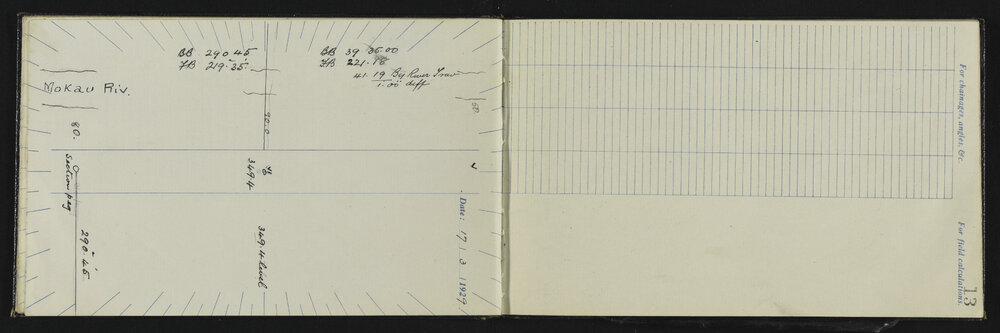 BB 290 45
FB 219° 35'
BB 39 35.00
FB 221. 18
41. 19 By River Trav
1.00 diff
Mokau Riv.
80.
Section peg
290° 45'
90.0
349.4
349.4 level
50
Date: 17 / 3 / 1929
For chainages, angles, &c.
For field calculations.
13